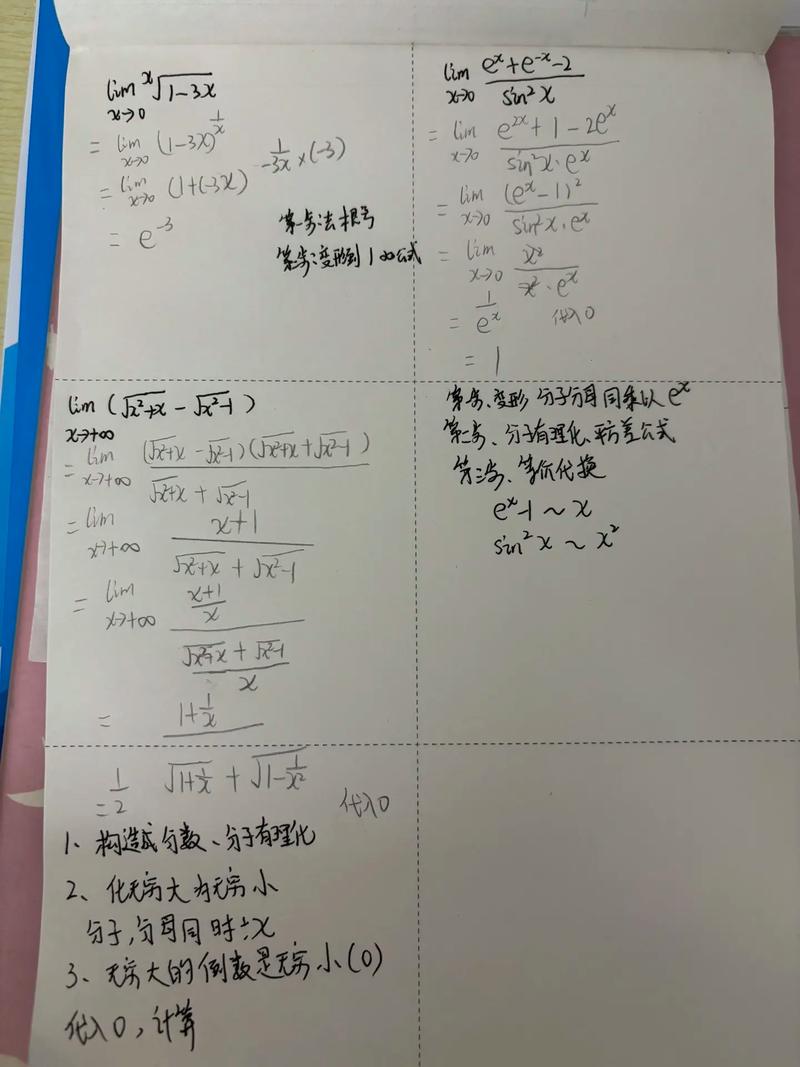 lim x→0 ˣ√(1-3x)
= lim x→0 (1-3x)^(1/x)
= lim x→0 (1+(-3x))^(1/(-3x)×(-3))
= e⁻³
第一步:去根号
第二步:变形到1∞公式
lim x→0 (eˣ+e⁻ˣ-2)/(sin²x)
= lim x→0 (e²ˣ+1-2eˣ)/(sin²x·eˣ)
= lim x→0 (eˣ-1)²/(sin²x·eˣ)
= lim x→0 x²/(x²·eˣ)
= 1/eˣ 代入0
= 1
lim x→+∞ (√(x²+x) - √(x²-1))
= lim x→+∞ (√(x²+x) - √(x²-1))(√(x²+x)+√(x²-1))/(√(x²+x) + √(x²-1))
= lim x→+∞ (x+1)/(√(x²+x) + √(x²-1))
= lim x→+∞ ((x+1)/x)/((√(x²+x) + √(x²-1))/x)
= (1+1/x)/(√(1+1/x) + √(1-1/x²))
= 1/2 代入0
1、构造成分数、分子有理化
2、化无穷大为无穷小
分子,分母同时÷x
3、无穷大的倒数是无穷小(0)
代入0,计算
第一步、变形 分子分母同乘以eˣ
第二步、分子有理化、平方差公式
第三步、等价代换
eˣ-1 ~ x
sin²x ~ x²